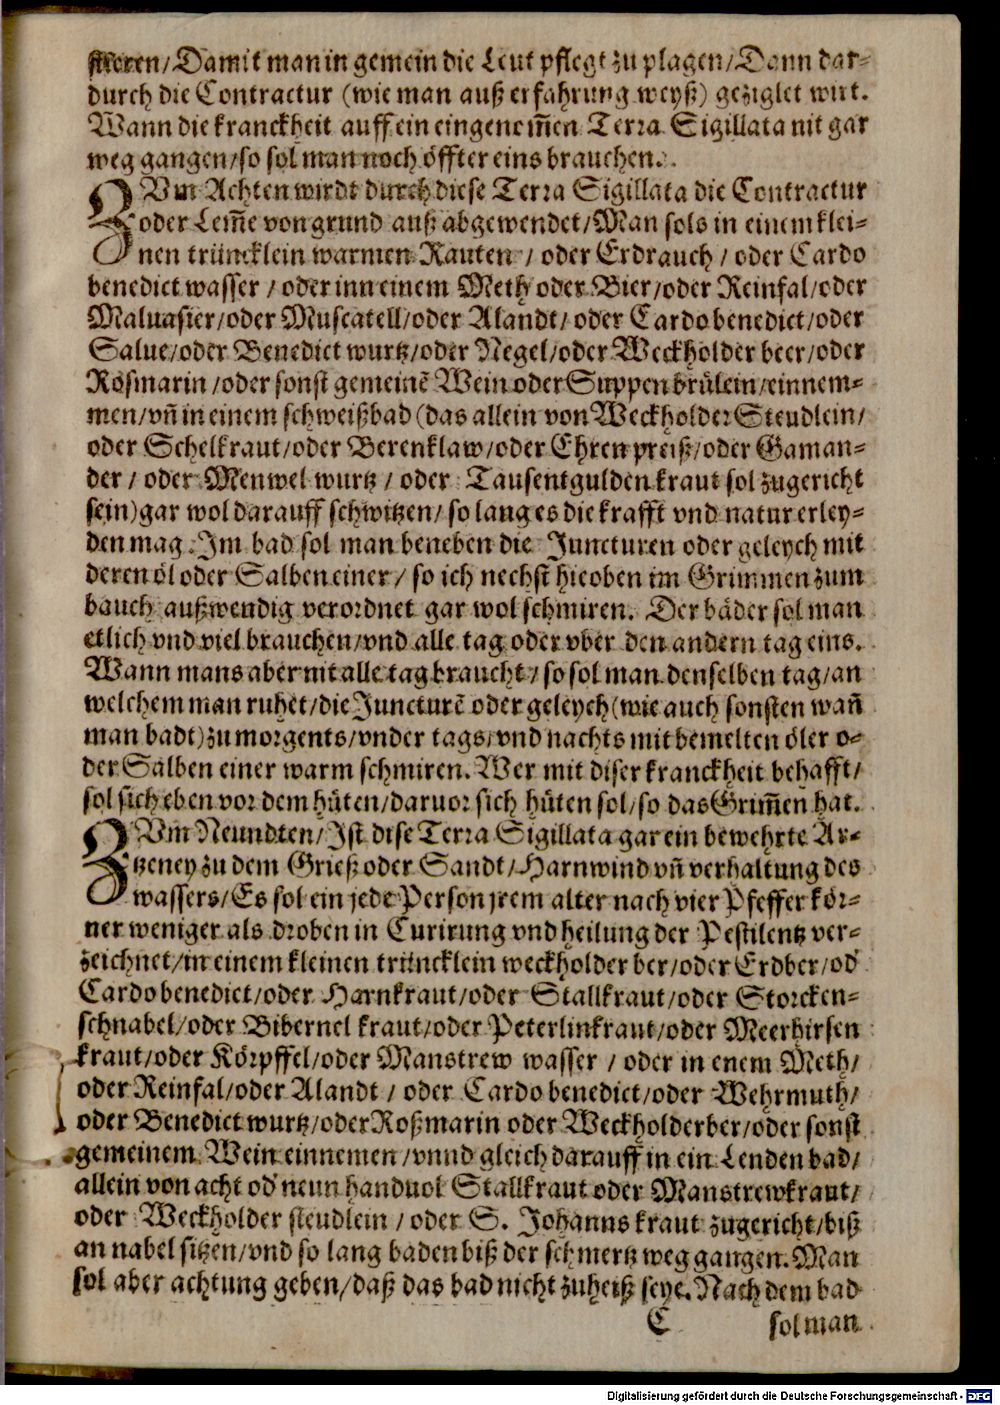 stieren/Damit man in gemein die Leut pflegt zu plagen/Dann dar-
durch die Contractur (wie man auß erfahrung weyß) geziglet wirt.
Wann die kranckheit auff ein eingenom̃en Terra Sigillata nit gar
weg gangen/so sol man noch öffter eins brauchen.
ZVm Achten wirdt durch diese Terra Sigillata die Contractur
oder Lem̃e von grund auß abgewendet/Man sols in einem klei-
nen trüncklein warmen Rauten / oder Erdrauch / oder Cardo
benedict wasser / oder inn einem Meth oder Bier/oder Reinfal/oder
Maluasier/oder Muscatell/oder Alandt/ oder Cardobenedict/oder
Salue/oder Benedict wurtz/oder Negel/oder Weckholder beer/oder
Rosmarin /oder sonst gemeinē Wein oder Suppen brülein/einnem-
men/vñ in einem schweißbad (das allein von Weckholder Steudlein/
oder Schelkraut/oder Berenklaw/oder Ehrenpreiß/oder Gaman-
der / oder Menwel wurtz / oder Tausentgulden kraut sol zugericht
sein) gar wol darauff schwitzen/ so lang es die krafft vnd natur erley-
den mag. Im bad sol man beneben die Juncturen oder geleych mit
deren öl oder Salben einer / so ich nechst hieoben im Grimmen zum
bauch außwendig verordnet gar wol schmiren. Der bäder sol man
etlich vnd viel brauchen/vnd alle tag oder vber den andern tag eins.
Wann mans aber nit alle tag braucht / so sol man denselben tag/an
welchem man ruhet/die Juncturē oder geleych (wie auch sonsten wañ
man badt) zu morgents/vnder tags/vnd nachts mit bemelten öler o-
der Salben einer warm schmiren. Wer mit diser kranckheit behafft/
sol sich eben vor dem hüten/daruor sich hüten sol/so das Grim̃en hat.
ZVm Neundten/Ist dise Terra Sigillata gar ein bewehrte Ar-
tzeney zu dem Grieß oder Sandt/Harnwind vñ verhaltung des
wassers/Es sol ein jede Person jrem alter nach vier Pfeffer kör-
ner weniger als droben in Curirung vnd heilung der Pestilentz ver-
zeichnet/in einem kleinen trüncklein weckholder ber/oder Erdber/od'
Cardobenedict/oder Harnkraut/oder Stallkraut/oder Storcken-
schnabel/oder Bibernel kraut/oder Peterlinkraut/oder Meerhirsen
kraut/oder Körpffel/oder Manstrew wasser / oder in enem Meth/
oder Reinfal/oder Alandt / oder Cardo benedict/oder Wehrmuth/
oder Benedict wurtz/oder Roßmarin oder Weckholderber/oder sonst
gemeinem Wein einnemen /vnnd gleich darauff in ein Lenden bad/
allein von acht od' neun handuol Stallkraut oder Manstrewkraut/
oder Weckholder steudlein / oder S. Johanns kraut zugericht/biß
an nabel sitzen/vnd so lang baden biß der schmertz weg gangen. Man
sol aber achtung geben/daß das bad nicht zuheiß seye. Nach dem bad
C sol man
Digitalisierung gefördert durch die Deutsche Forschungsgemeinschaft - DFG